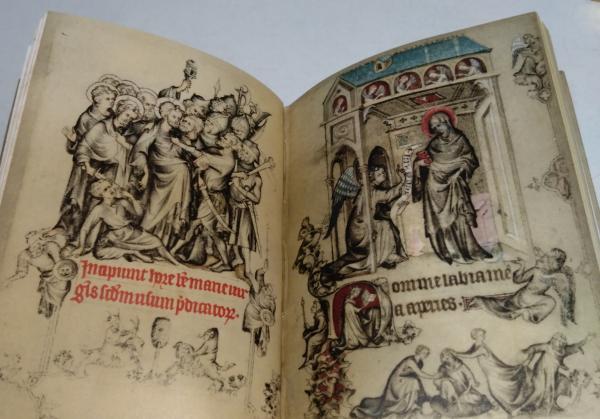 Incipiunt hore be marie uir
gis scdm usum pdicator.
Domine labia me
a apries.